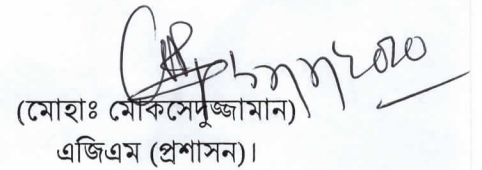 (মোহাঃ মোকসেদুজ্জামান)
এজিএম (প্রশাসন)।